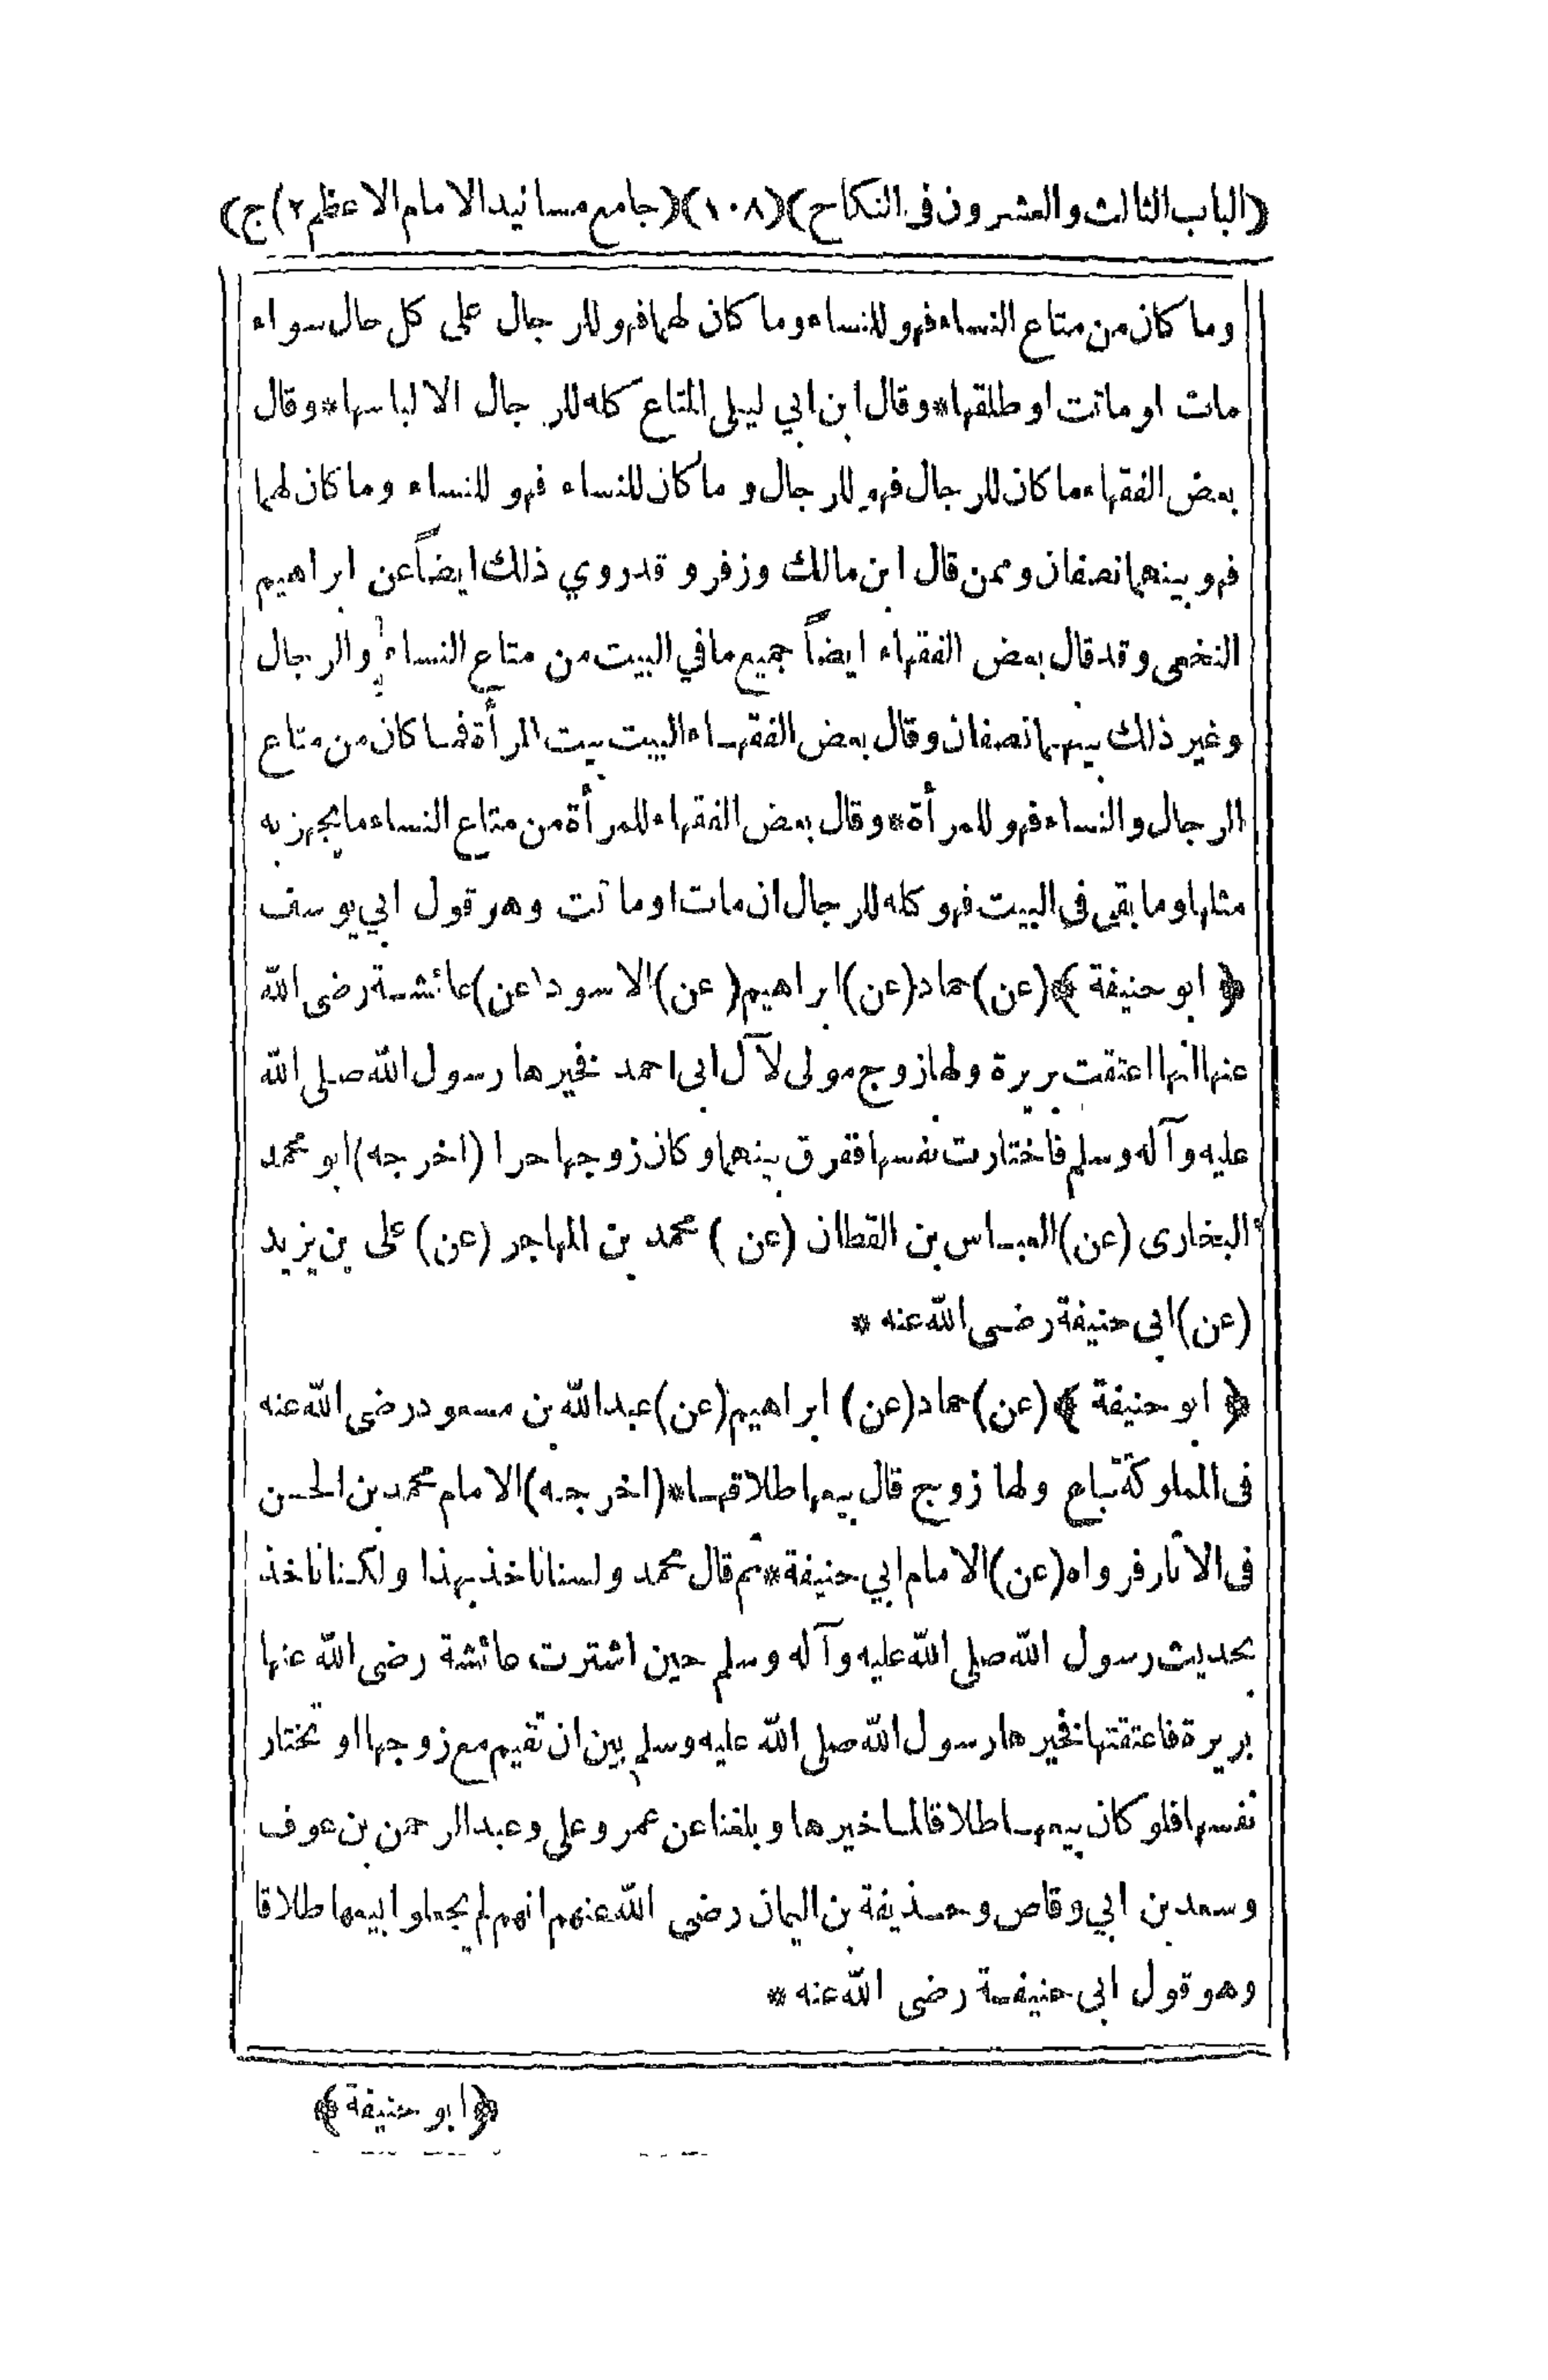 (الباب الثالث والعشرون في النكاح) (١٠٨) (جامع مسانيد الامام الاعظم ٢) ج)
وما كان من متاع النساء فهو للنساء وما كان لهما فهو للرجال على كل حال سواء
مات او ماتت او طلقها * وقال ابن ابي ليلى المتاع كله للرجال الا لباسها * وقال
بعض الفقهاء ما كان للرجال فهو للرجال و ما كان للنساء فهو للنساء وما كان لهما
فهو بينهما نصفان وممن قال ابن مالك وزفر و قد روي ذلك ايضاً عن ابراهيم
النخعى وقد قال بعض الفقهاء ايضاً جميع ما في البيت من متاع النساء والرجال
وغير ذلك بينهما نصفان وقال بعض الفقهاء البيت بيت المرأة فما كان من متاع
الرجال والنساء فهو للمرأة * وقال بعض الفقهاء للمرأة من متاع النساء ما يجهز به
مثلها وما بقى فى البيت فهو كله للرجال ان مات او ماتت وهو قول ابي يوسف
﴿ ابو حنيفة ﴾ (عن) حماد (عن) ابراهيم (عن) الاسود (عن) عائشة رضى الله
عنها انها اعتقت بريرة ولها زوج مولى لآل ابى احمد فخيرها رسول الله صلى الله
عليه وآله وسلم فاختارت نفسها ففرق بينهما وكان زوجها حرا (اخرجه) ابو محمد
البخارى (عن) العباس بن القطان (عن) محمد بن المهاجر (عن) على بن يزيد
(عن) ابى حنيفة رضى الله عنه *
﴿ ابو حنيفة ﴾ (عن) حماد (عن) ابراهيم (عن) عبد الله بن مسعود رضى الله عنه
فى المملوكة تباع ولها زوج قال بيعها طلاقها * (اخرجه) الامام محمد بن الحسن
فى الآثار فرواه (عن) الامام ابي حنيفة * ثم قال محمد ولسنا ناخذ بهذا ولكنا ناخذ
بحديث رسول الله صلى الله عليه وآله وسلم حين اشترت عائشة رضى الله عنها
بريرة فاعتقتها فخيرها رسول الله صلى الله عليه وسلم بين ان تقيم مع زوجها او تختار
نفسها فلو كان بيعها طلاقا لما خيرها و بلغنا عن عمر وعلى وعبد الرحمن بن عوف
وسعد بن ابي وقاص وحذيفة بن اليمان رضى الله عنهم انهم لم يجعلوا بيعها طلاقا
وهو قول ابى حنيفة رضى الله عنه *
﴿ابو حنيفة﴾